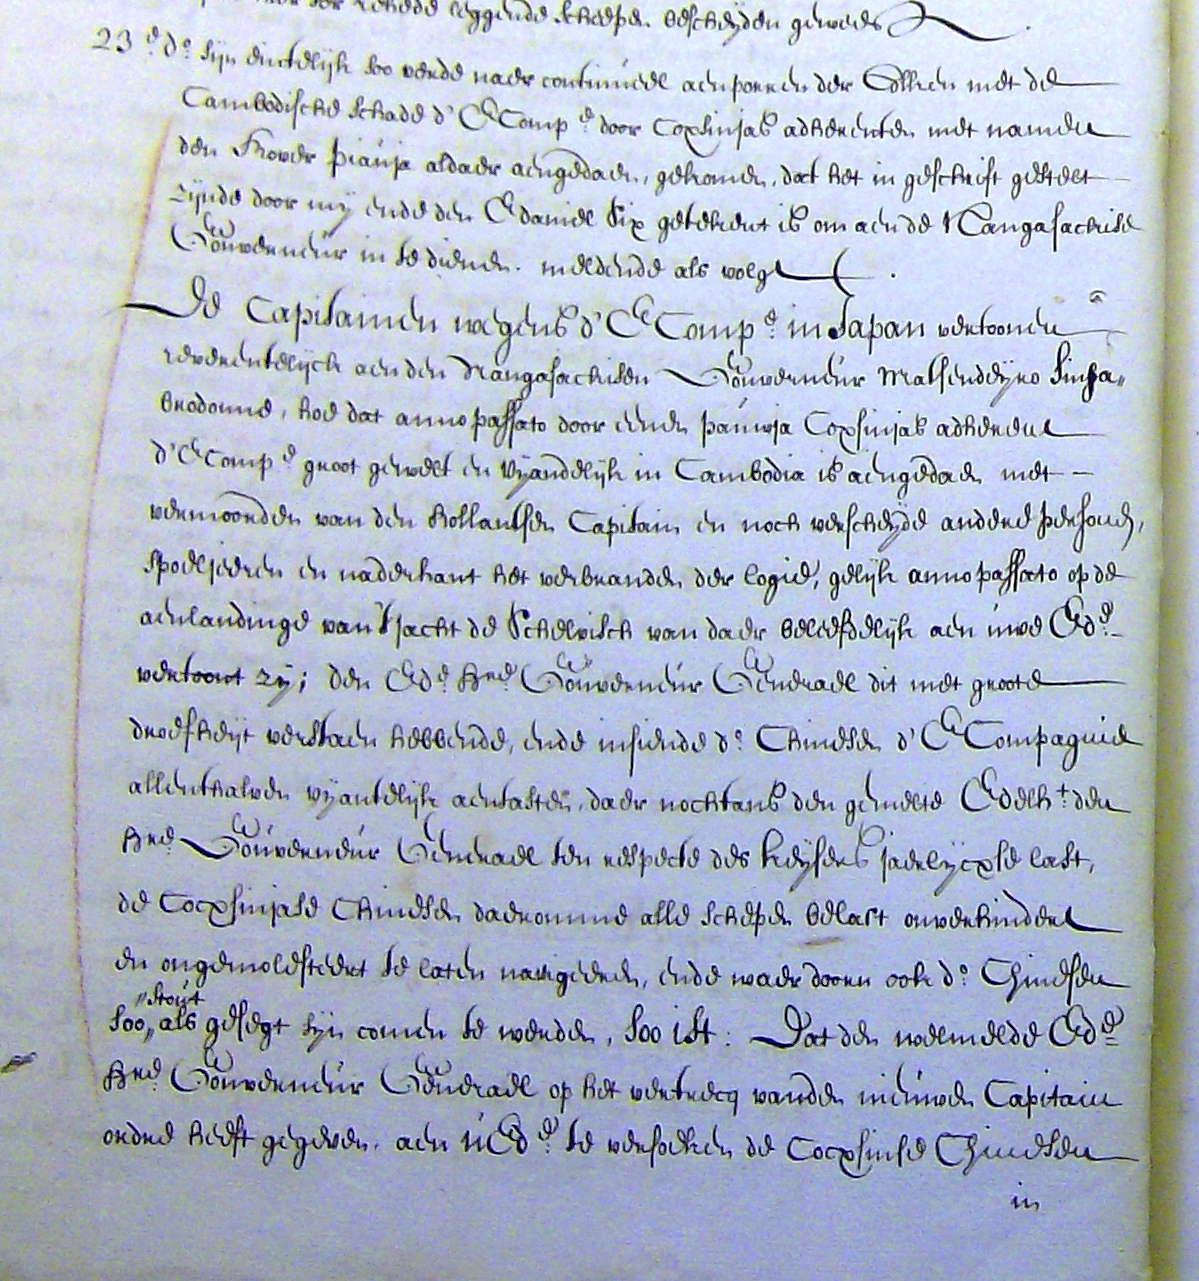 leggende scheepen bescheyden geweest
23.e d.o sijn eintelijk soo verde naer continueel aenporren der Tolken met de
Cambodische schade d' E Comp.e door Coxsinjas adherenten met namen
den Rover Piauja aldaer aengedaen, gekomen, dat het in geschrift gestelt
zijnde door mij ende den E daniel Six getekent is om aen de Nangasackise
Gouverneur in te dienen. meldende als volgt
De Capitainen wegens d' E Comp.e in Japan vertoonen
reverentelijck aen den Nangasackisen Gouverneur Matsendeyro Sinsa„
brodonne, hoe dat anno passato door eenen piauwja Coxsinjas adherent
d' E Comp.e groot gewelt en vijandelijk in Cambodia is aengedaen met
vermoorden van den hollantsen Capitain en noch verscheyde andere persoonen,
spoeljeeren en naderhant het verbranden der logie, gelijk anno passato op de
aenlandinge van 't jacht de Schelvisch van daer beleefdelijk aen uwe Ed.e
vertoont zij; den Ed.e Heer Gouverneur Generael dit met groote
droefheijt verstaen hebbende, ende insiende d.e Chinesen d' E Compagnie
allenthalven vijantelijk aentasten, daer nochtans den gemelte Edelh.t den
Heer Gouverneur Generael ten respecte des keijsers jaerlijcxse last,
de Cocxsinjase Chinesen daeromme alle schepen belast onverhindert
en ongemolesteert te laten navigeeren, ende waer doorn ook d.e Chinesen
soo „stout„ als gesegt sijn comen te werden, Soo ist: Dat den welmelde Ed.e
Heer Gouverneur Generael op het vertrecq vanden nieuwen Capitain
ordre heeft gegeven. aen UEd.e te versoeken de Cocxsinse Chinesen
in